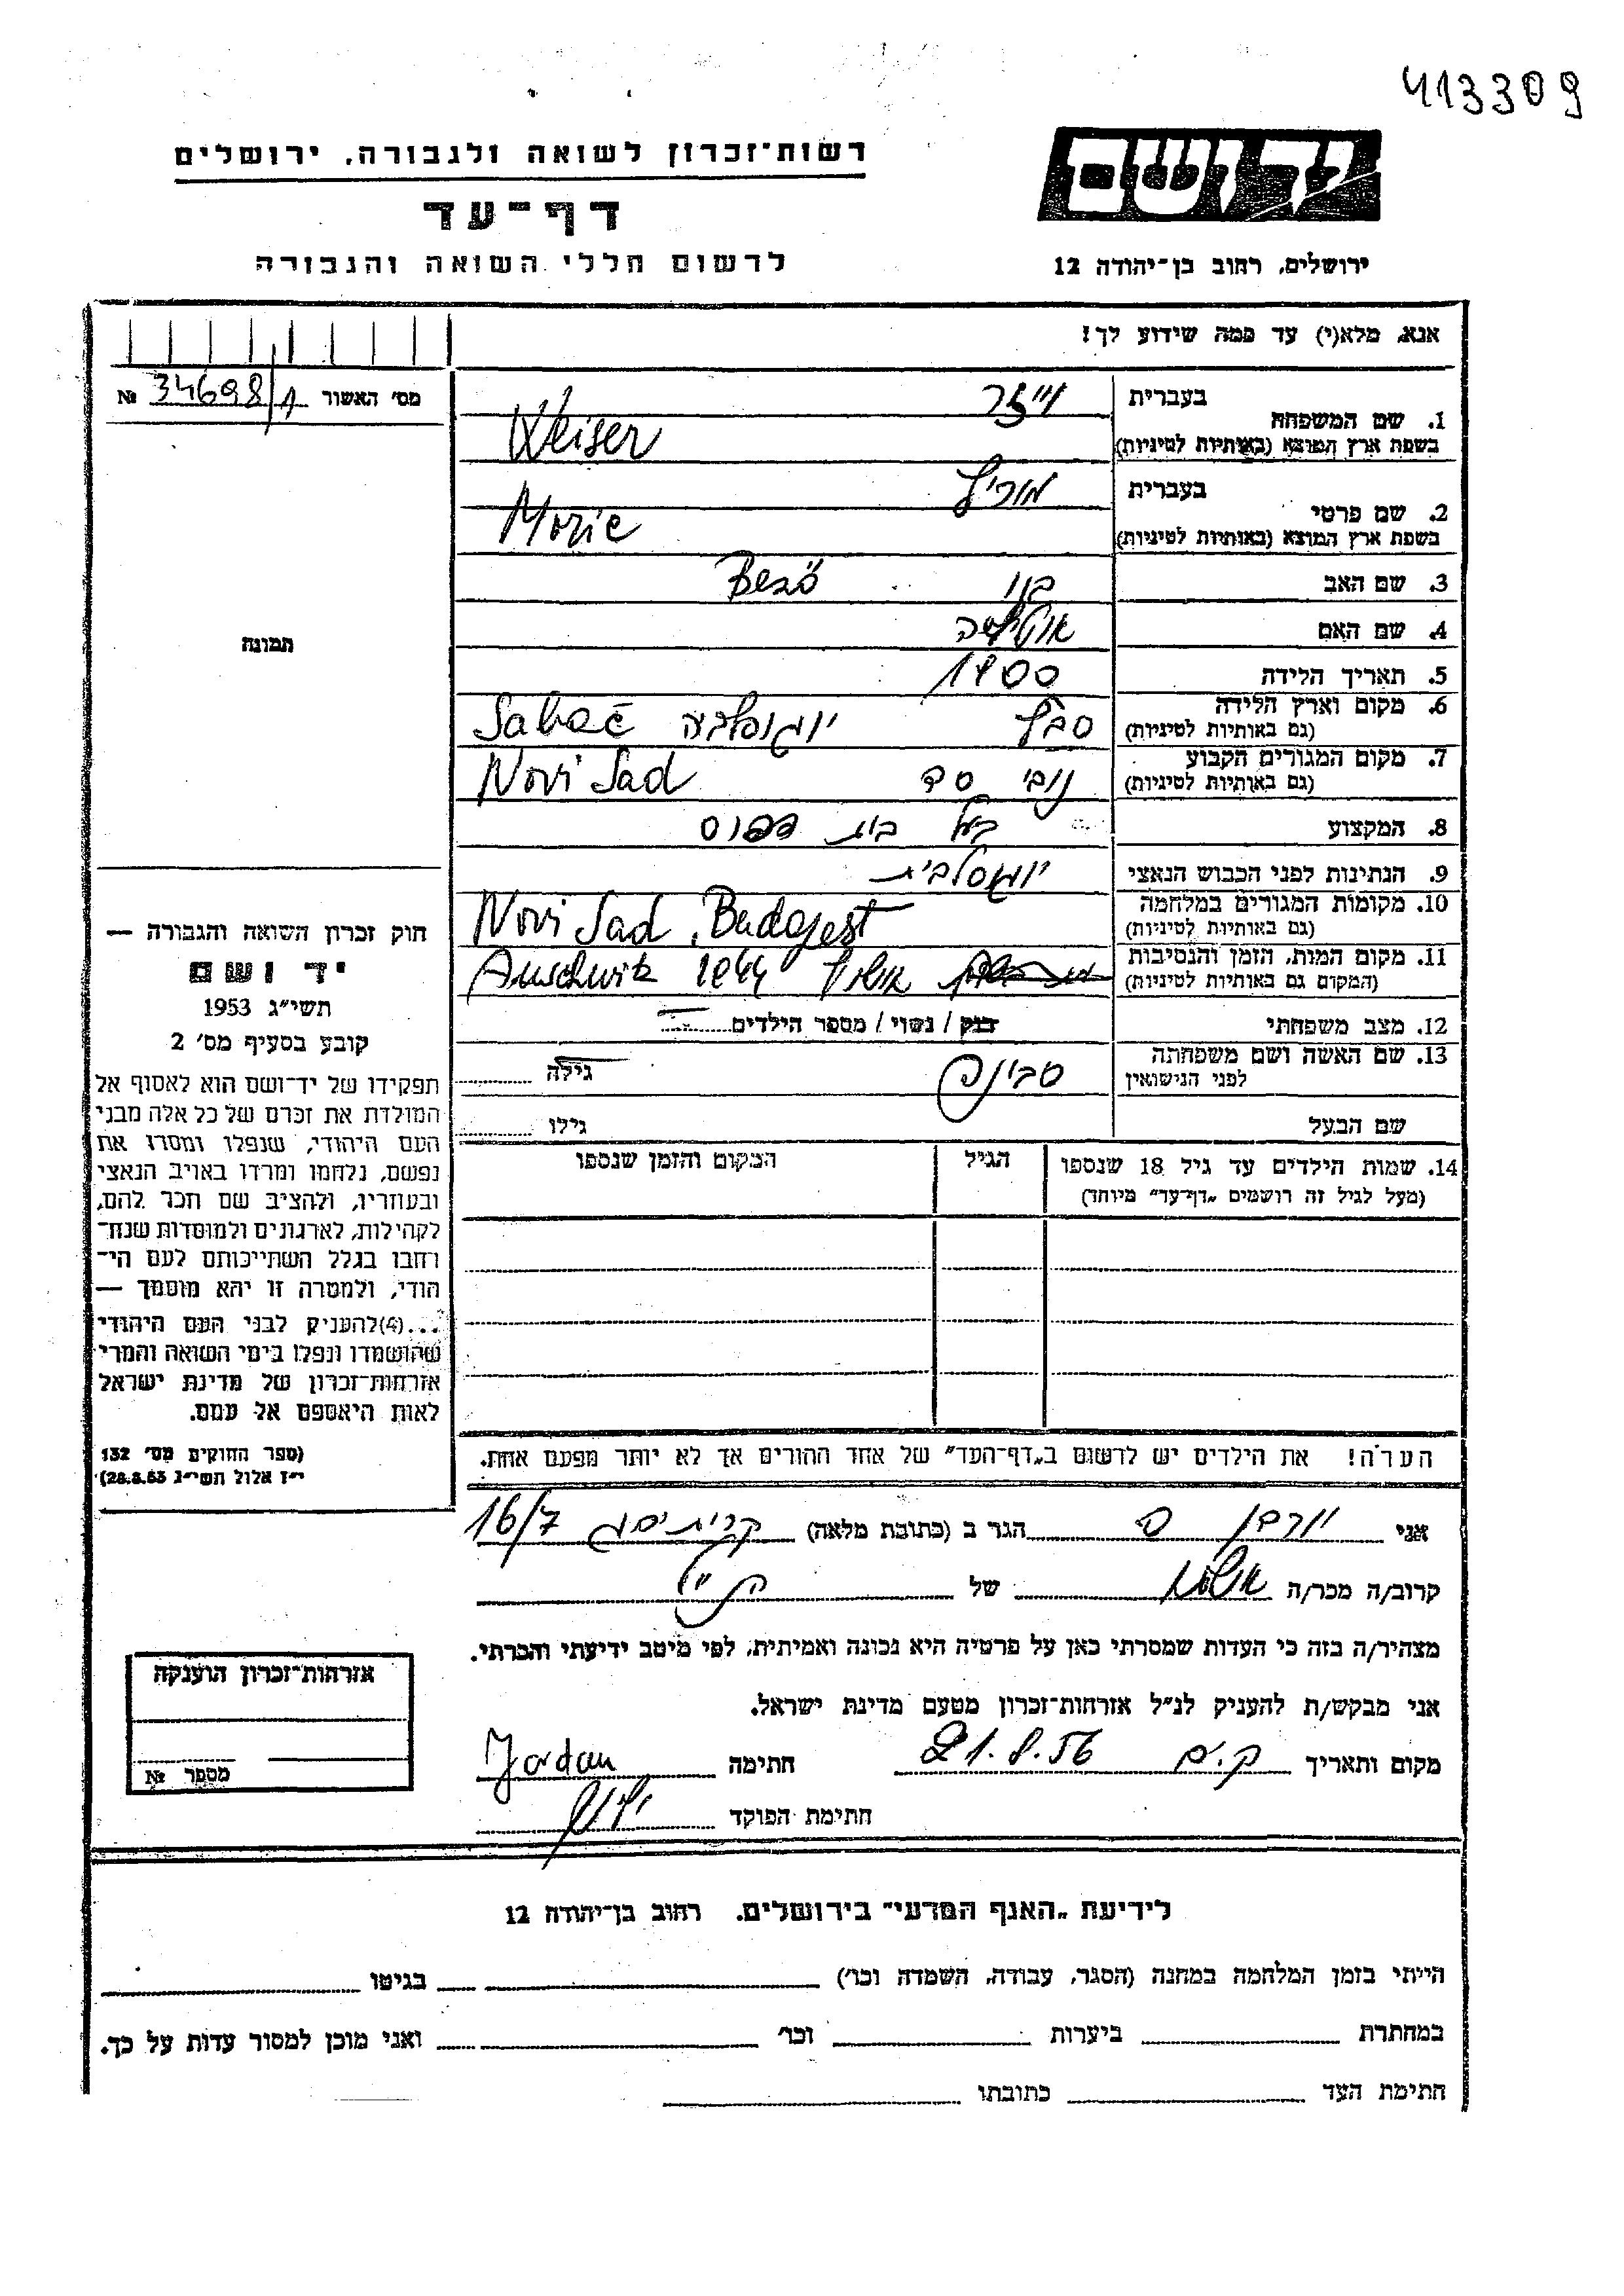 413309
רשות־זכרון לשואה ולגבורה, ירושלים
יד ושם
דף־עד
לרשום חללי השואה והגבורה
ירושלים, רחוב בן־יהודה 12
אנא, מלא(י) עד כמה שידוע לך!
מס׳ האשור № 34698/1
1. שם המשפחה
בעברית
ווייזר
בשפת ארץ המוצא (באותיות לטיניות)
Weiser
2. שם פרטי
בעברית
מוריץ
בשפת ארץ המוצא (באותיות לטיניות)
Moric
3. שם האב
4. שם האם
5. תאריך הלידה 1900
6. מקום וארץ הלידה
(גם באותיות לטיניות)
סבץ יוגוסלביה Sabač
7. מקום המגורים הקבוע
(גם באותיות לטיניות)
נובי סד Novi Sad
8. המקצוע בעל בית דפוס
9. הנתינות לפני הכבוש הנאצי יוגוסלבית
10. מקומות המגורים במלחמה
(גם באותיות לטיניות)
Novi Sad, Budapest
11. מקום המות, הזמן והנסיבות
(המקום גם באותיות לטיניות)
אושויץ 1944 Auschwitz
12. מצב משפחתי רווק / נשוי / מספר הילדים
13. שם האשה ושם משפחתה
לפני הנישואין
גילה
שם הבעל גילו
14. שמות הילדים עד גיל 18 שנספו
(מעל לגיל זה רושמים „דף־עד״ מיוחד)
הגיל
המקום והזמן שנספו
הערה! את הילדים יש לרשום ב„דף־העד״ של אחד ההורים אך לא יותר מפעם אחת.
תמונה
חוק זכרון השואה והגבורה —
יד ושם
תשי״ג 1953
קובע בסעיף מס׳ 2
תפקידו של יד־ושם הוא לאסוף אל
המולדת את זכרם של כל אלה מבני
העם היהודי, שנפלו ומסרו את
נפשם, נלחמו ומרדו באויב הנאצי
ובעוזריו, ולהציב שם וזכר להם,
לקהילות, לארגונים ולמוסדות שנח־
רחבו בגלל השתייכותם לעם הי־
הודי, ולמטרה זו יהא מוסמך —
...(4)להעניק לבני העם היהודי
שהושמדו ונפלו בימי השואה והמרי
אזרחות־זכרון של מדינת ישראל
לאות היאספם אל עמם.
(ספר החוקים מס׳ 132
י״ז אלול תשי״ג 28.8.53)
אני ירדן פ הגר ב (כתובת מלאה) קרית ים ג 16/7
קרוב/ה מכר/ה של הנ״ל
מצהיר/ה בזה כי העדות שמסרתי כאן על פרטיה היא נכונה ואמיתית, לפי מיטב ידיעתי והכרתי.
אני מבקש/ת להעניק לנ״ל אזרחות־זכרון מטעם מדינת ישראל.
מקום ותאריך ק.ים 21.8.56 חתימה Jordan
חתימת הפוקד
אזרחות־זכרון הוענקה
מספר №
לידיעת „האגף המדעי״ בירושלים, רחוב בן־יהודה 12
הייתי בזמן המלחמה במחנה (הסגר, עבודה, השמדה וכו׳) בגיטו
במחתרת ביערות וכו׳ ואני מוכן למסור עדות על כך.
חתימת העד כתובתו